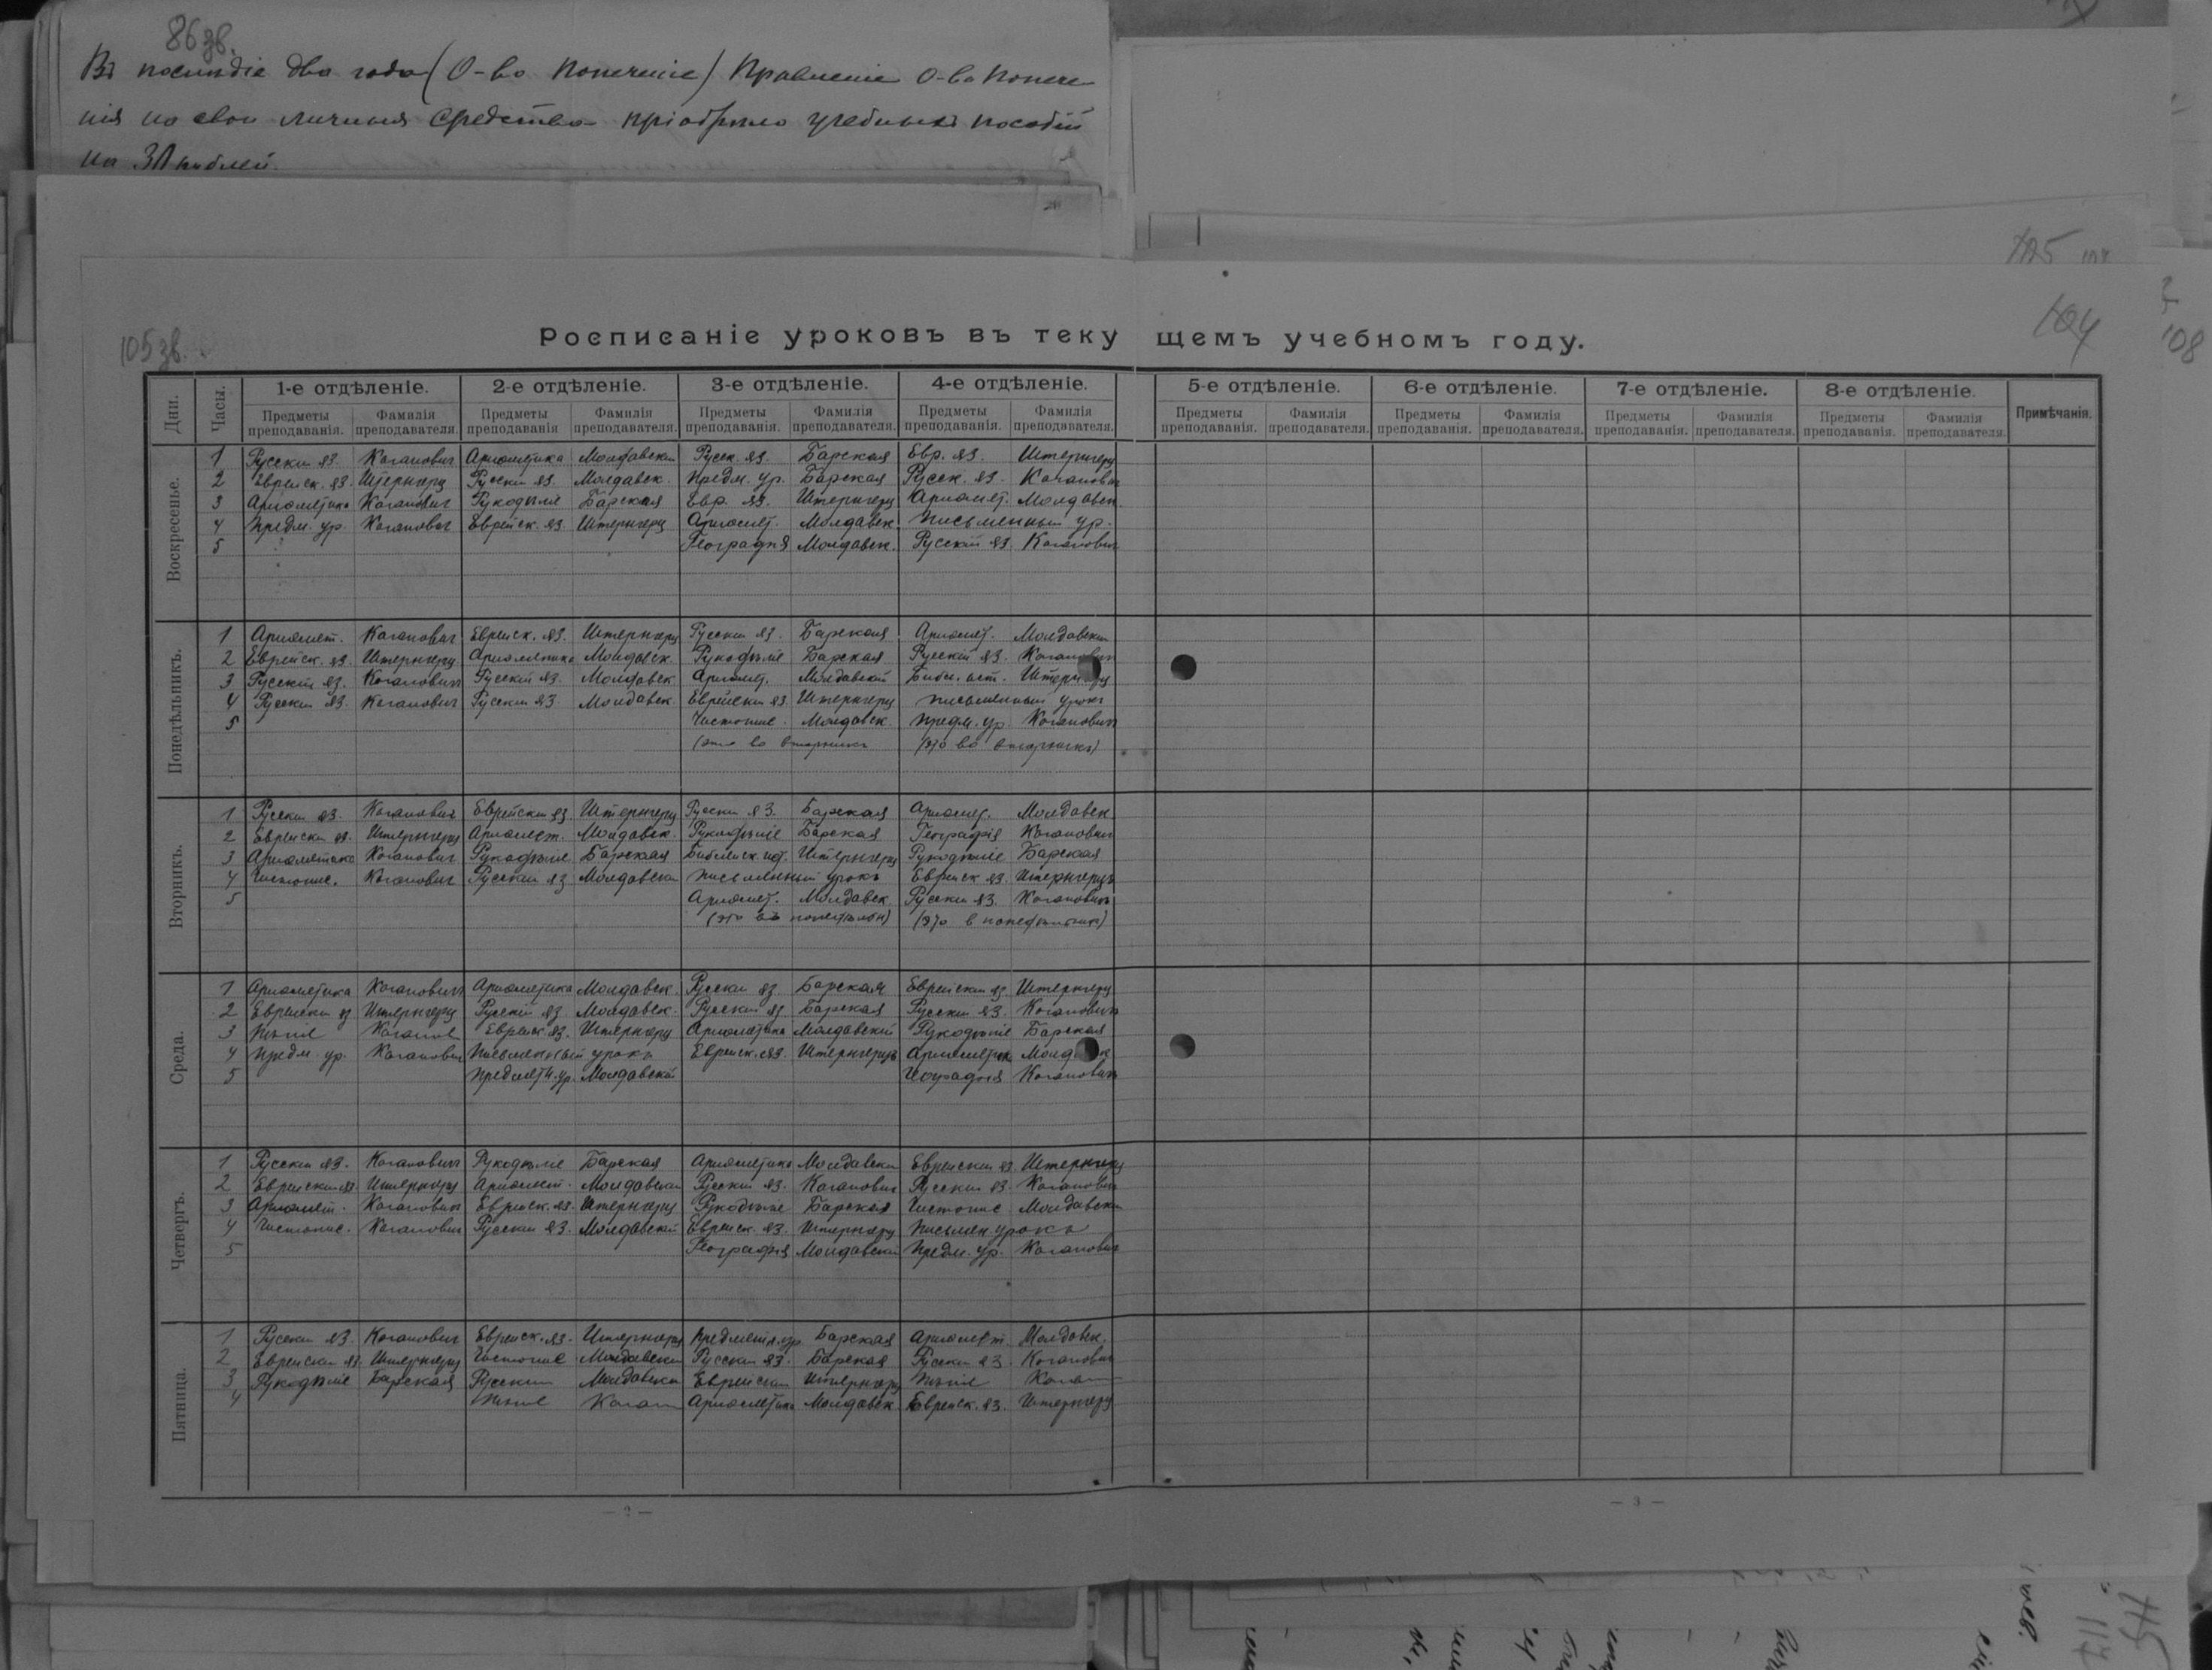 86 зв.
Въ последніе два года (О-во Попеченіе) Правленіе О-ва Попече
нія на свои личныя средства пріобрѣло учебныхъ пособій
на 30 рублей.
125
105 зв.
104
108
Росписаніе уроковъ въ теку щемъ учебномъ году.
Дни. Часы. 1-е отдѣленіе. 2-е отдѣленіе. 3-е отдѣленіе. 4-е отдѣленіе. 5-е отдѣленіе. 6-е отдѣленіе. 7-е отдѣленіе. 8-е отдѣленіе. Примѣчанія.
Предметы Фамилія Предметы Фамилія Предметы Фамилія Предметы Фамилія Предметы Фамилія Предметы Фамилія Предметы Фамилія Предметы Фамилія
преподаванія. преподавателя. преподаванія преподавателя. преподаванія. преподавателя. преподаванія. преподавателя. преподаванія. преподавателя. преподаванія. преподавателя. преподаванія. преподавателя. преподаванія. преподавателя.
Воскресенье.
1 Русскій яз. Каганович Ариѳметика Молдавскій Русск. яз. Барская Евр. яз. Штернгерц
2 Еврейск. яз. Штернгерц Русскій яз. Молдавск. Предм. ур. Барская Русск. яз. Каганович
3 Ариѳметика Каганович Рукодѣліе Барская Евр. яз. Штернгерц Ариѳмет. Молдавск.
4 Предм. ур. Каганович Еврейск. яз. Штернгерц Ариѳмет. Молдавск. Письменный ур.
5 Географія Молдавск. Русскій яз. Каганович
Понедѣльникъ.
1 Ариѳмет. Каганович Еврейск. яз. Штернгерц Русскій яз. Барская Ариѳмет. Молдавскій
2 Еврейск. яз. Штернгерц Ариѳметика Молдавск. Рукодѣліе Барская Русскій яз. Каганович
3 Русскій яз. Каганович Русскій яз. Молдавск. Ариѳмет. Молдавскій Библ. ист. Штернгерц
4 Русскій яз. Каганович Русскій яз. Молдавск. Еврейскій яз. Штернгерц Письменный урокъ
5 Чистопис. Молдавск. Предм. ур. Каганович
(это во вторникъ) (это во вторникъ)
Вторникъ.
1 Русскій яз. Каганович Еврейскій яз. Штернгерц Русскій яз. Барская Ариѳмет. Молдавск.
2 Еврейскій яз. Штернгерц Ариѳмет. Молдавск. Рукодѣліе Барская Географія Каганович
3 Ариѳметика Каганович Рукодѣліе Барская Библейск. ист. Штернгерц Рукодѣліе Барская
4 Чистопис. Каганович Русскій яз. Молдавскій Письменный урокъ Еврейск. яз. Штернгерцъ
5 Ариѳмет. Молдавск. Русскій яз. Каганович
(это въ понедѣльн) (это в понедѣльник)
Среда.
1 Ариѳметика Каганович Ариѳметика Молдавск. Русскій яз. Барская Еврейскій яз. Штернгерц
2 Еврейскій яз. Штернгерц Русскій яз. Молдавск. Русскій яз. Барская Русскій яз. Каганович
3 Пѣніе Еврейск. яз. Штернгерц Ариѳметика Молдавскій Рукодѣліе Барская
4 Предм. ур. Каганович Письменный урокъ Еврейск. яз. Штернгерцъ Ариѳметик
5 Предметн. ур. Молдавскій Географія Каганович
Четвергъ.
1 Русскій яз. Каганович Рукодѣліе Барская Ариѳметика Молдавскій Еврейскій яз. Штернгерц
2 Еврейскій яз. Штернгерц Ариѳмет. Молдавскій Русскій яз. Каганович Русскій яз. Каганович
3 Ариѳмет. Каганович Еврейск. яз. Штернгерц Рукодѣліе Барская Чистопис. Молдавскій
4 Чистопис. Каганович Русскій яз. Молдавскій Еврейск. яз. Штернгерц Письмен. урокъ
5 Географія Молдавскій Предм. ур. Каганович
Пятница.
1 Русскій яз. Каганович Еврейск. яз. Штернгерц Предметн. ур. Барская Ариѳмет. Молдавск.
2 Еврейскій яз. Штернгерц Чистопис Молдавскій Русскій яз. Барская Русскій яз. Каганович
3 Рукодѣліе Барская Русскій Молдавскій Еврейскій Штернгерц Пѣніе
4 Пѣніе Ариѳметика Молдавск. Еврейск. яз. Штернгерц
— 2 —
— 3 —
117